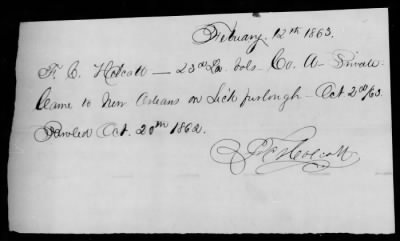 February 12th 1863.
F. C. Holcott — 23rd La. Vols — Co. A — Private
Came to New Orleans on Sick furlough — Oct 2nd/63.
Paroled Oct. 20th 1862.
F C Holcott